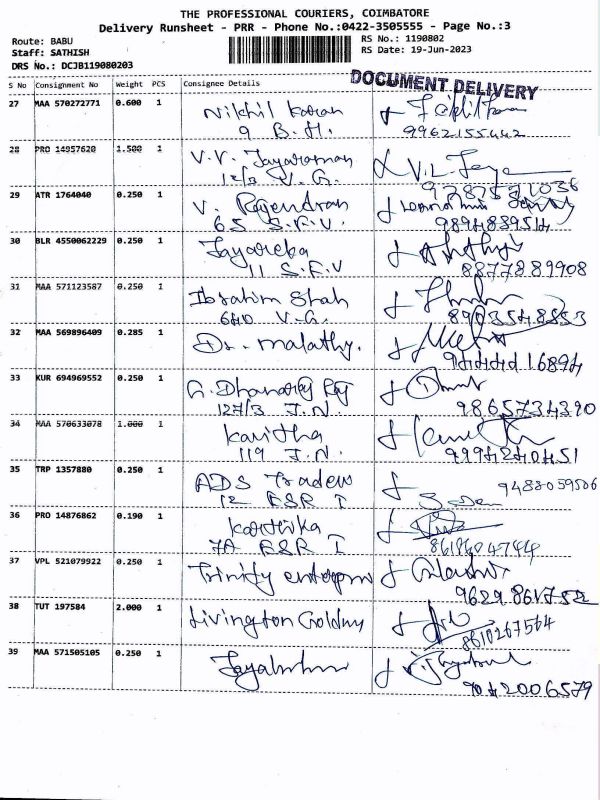 THE PROFESSIONAL COURIERS, COIMBATORE
Delivery Runsheet - PRR - Phone No.:0422-3505555 - Page No.:3
Route: BABU
RS No.: 1190802
Staff: SATHISH
RS Date: 19-Jun-2023
DRS No.: DCJB119080203
DOCUMENT DELIVERY
S No Consignment No Weight PCS Consignee Details
27 MAA 570272771 0.600 1 Nikhil Karan
9 B.H. 9962155442
28 PRO 14957620 1.500 1 V.V. Jayaraman
12/3 V.G. 9787571036
29 ATR 1764040 0.250 1 V. Rajendran
65 S.F.V. 9894839514
30 BLR 4550062229 0.250 1 Jayareka
11 S.F.V 8877889908
31 MAA 571123587 0.250 1 Ibrahim Shah
640 V.G. 8903548553
32 MAA 569896409 0.285 1 Dr. malathy.
9444416894
33 KUR 694969552 0.250 1 G. Dhanaraj Raj
127/3 J.N. 9865734390
34 MAA 570633078 1.000 1 Kavitha
119 J.N. 9994240451
35 TRP 1357880 0.250 1 ADS Traders 9488059506
12 ESR I
36 PRO 14876862 0.190 1 Karthika
7A ESR I 8619604744
37 VPL 521079922 0.250 1 Trinity enterprn
9629861752
38 TUT 197584 2.000 1 Livington
8610267564
39 MAA 571505105 0.250 1
9042006579